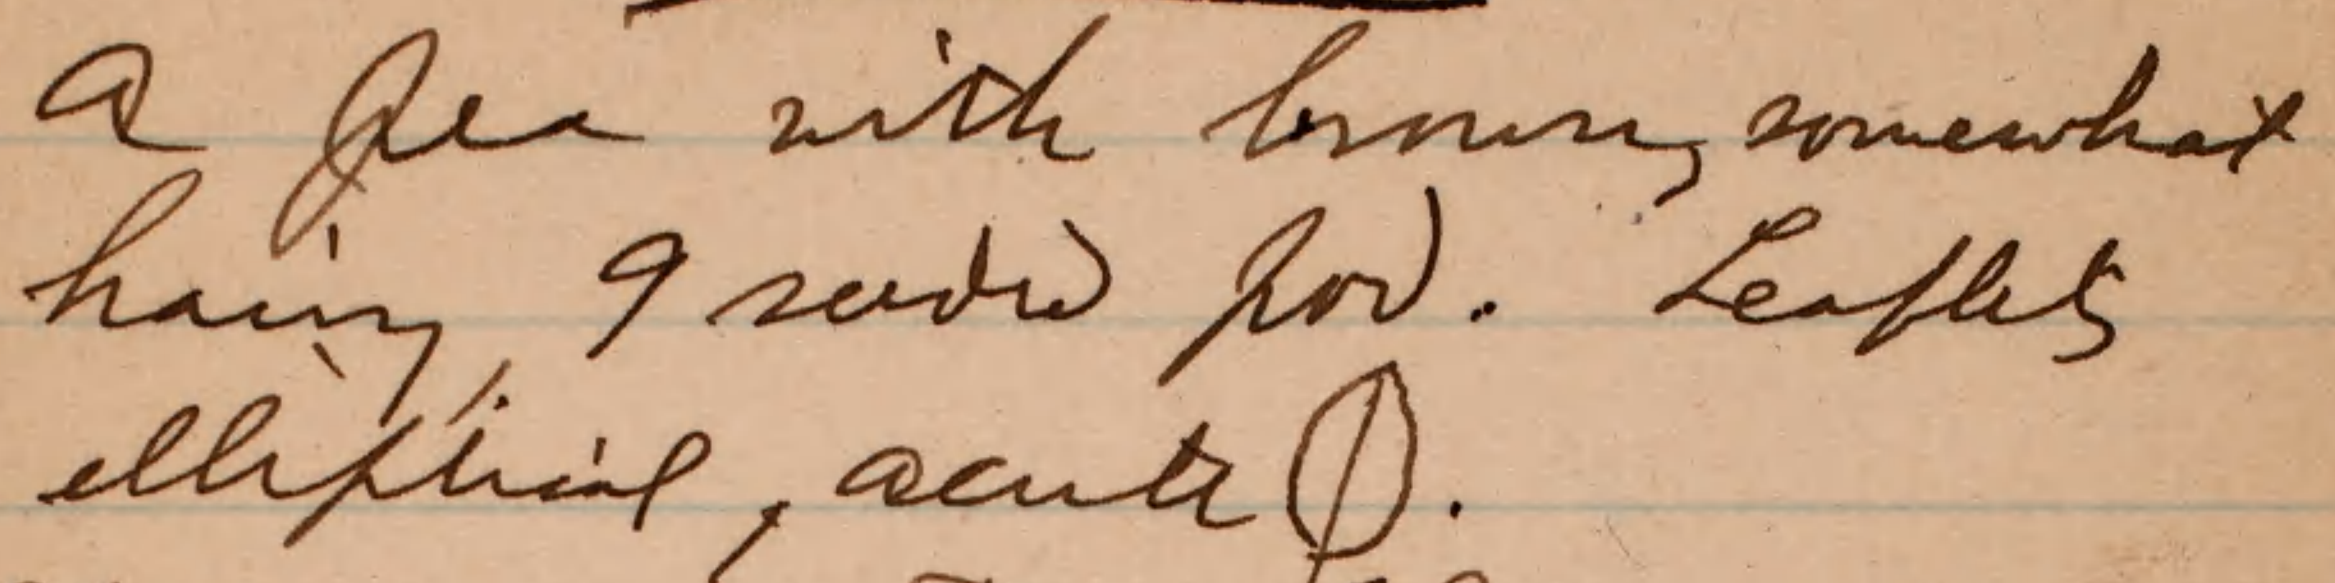 A pea with brown, somewhat
hairy, 9 seeded pod. Leaflets
elliptical, acute .